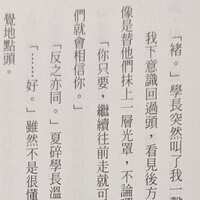 「褚。」學長突然叫了我一聲
我下意識回過頭，看見後方
像是替他們抹上一層光罩，不論
「你只要，繼續往前走就可
們就會相信你。」
「反之亦同。」夏碎學長溫
「……好。」雖然不是很懂
覺地點頭。